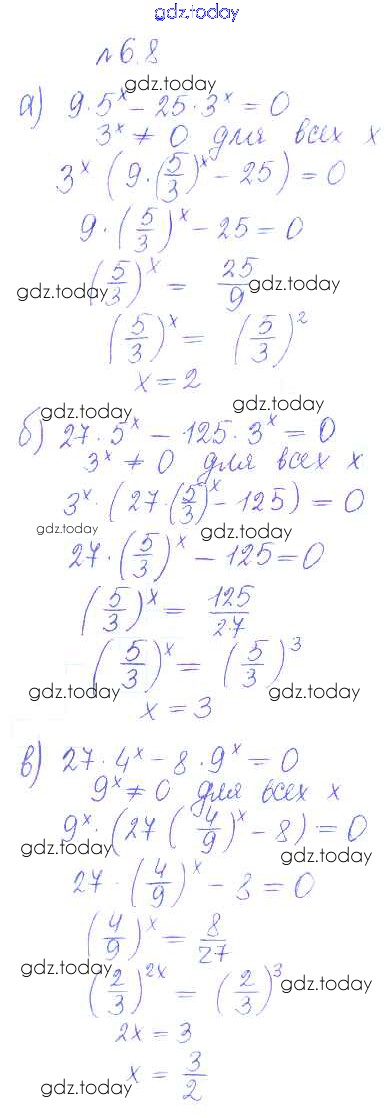 gdz.today
№6.8
gdz.today
а) 9·5^x − 25·3^x = 0
3^x ≠ 0 для всех x
3^x (9·(5/3)^x − 25) = 0
9·(5/3)^x − 25 = 0
(5/3)^x = 25/9
gdz.today gdz.today
(5/3)^x = (5/3)^2
x = 2
gdz.today gdz.today
б) 27·5^x − 125·3^x = 0
3^x ≠ 0 для всех x
3^x·(27·(5/3)^x − 125) = 0
gdz.today gdz.today
27·(5/3)^x − 125 = 0
(5/3)^x = 125/27
(5/3)^x = (5/3)^3
gdz.today gdz.today
x = 3
в) 27·4^x − 8·9^x = 0
9^x ≠ 0 для всех x
9^x·(27(4/9)^x − 8) = 0
gdz.today gdz.today
27·(4/9)^x − 8 = 0
(4/9)^x = 8/27
gdz.today gdz.today
(2/3)^2x = (2/3)^3
2x = 3
x = 3/2
gdz.today gdz.today